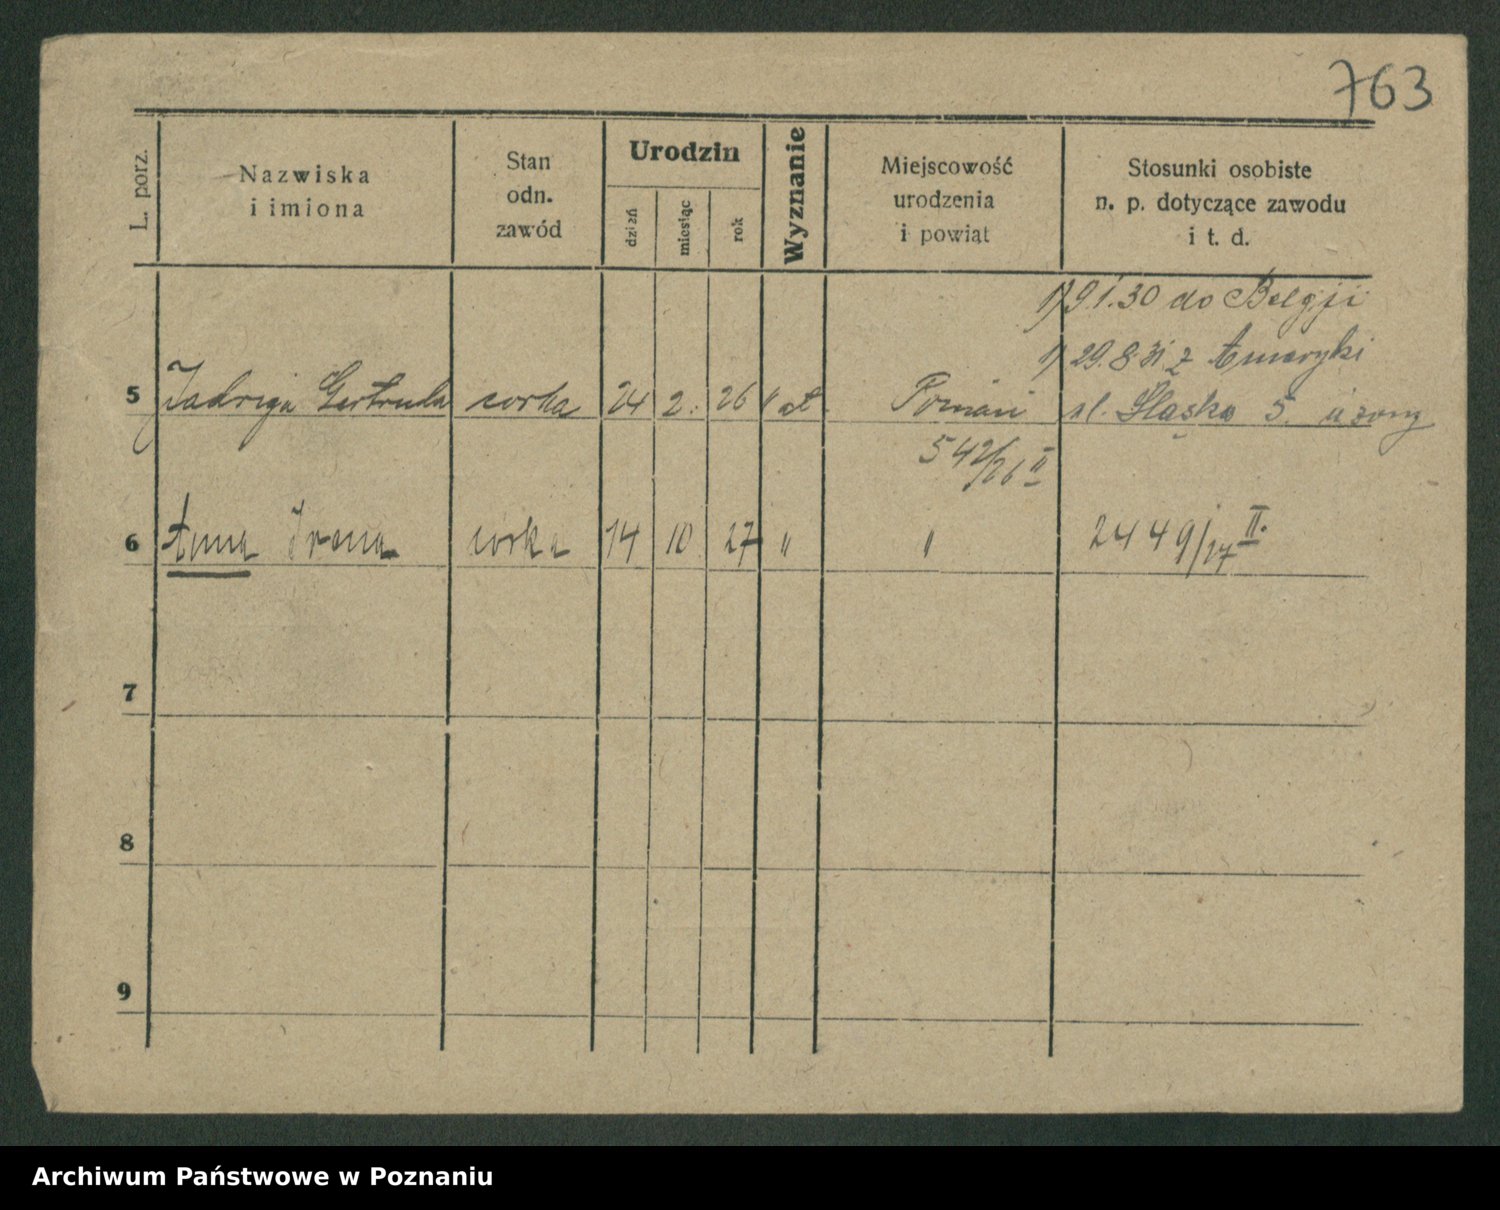 763
L. porz.
Nazwiska
i imiona
Stan
odn.
zawód
Urodzin
dzień
miesiąc
rok
Wyznanie
Miejscowość
urodzenia
i powiat
Stosunki osobiste
n. p. dotyczące zawodu
i t. d.
1) 9.1.30 do Belgji
1) 29.8.31 z Ameryki
5 Jadwiga Gertruda corka 24 2. 26 " Poznań ul. Śląska 5. u żony
542/26 II
6 Anna Irena corka 14 10 27 " " 2449/27 II.
7
8
9
Archiwum Państwowe w Poznaniu